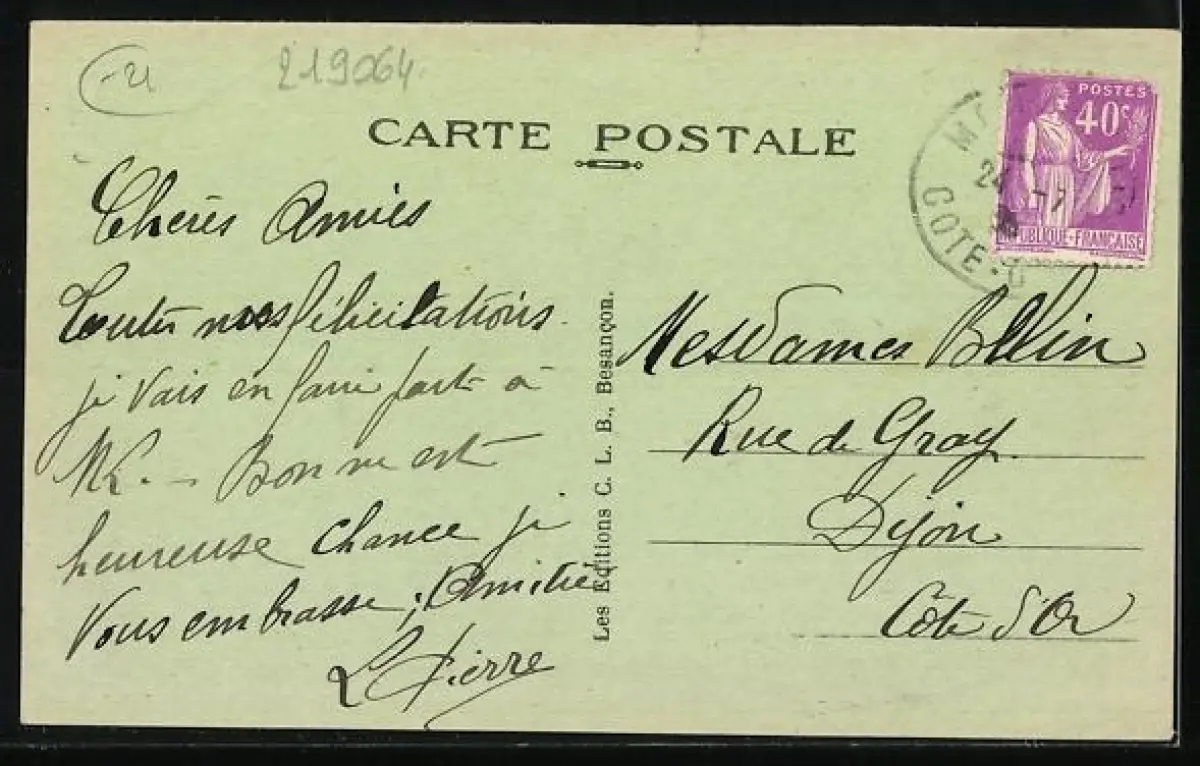 -21
219064
CARTE POSTALE
POSTES
40c
REPUBLIQUE-FRANCAISE
24 -7
COTE-D
Chères Amies
Toutes nos félicitations.
je vais en faire part à
Bonne et
heureuse chance je
Vous embrasse, Amitié
L Pierre
Les Editions C. L. B., Besançon.
Mesdames Bellin
Rue de Gray.
Dijon
Côte d'Or